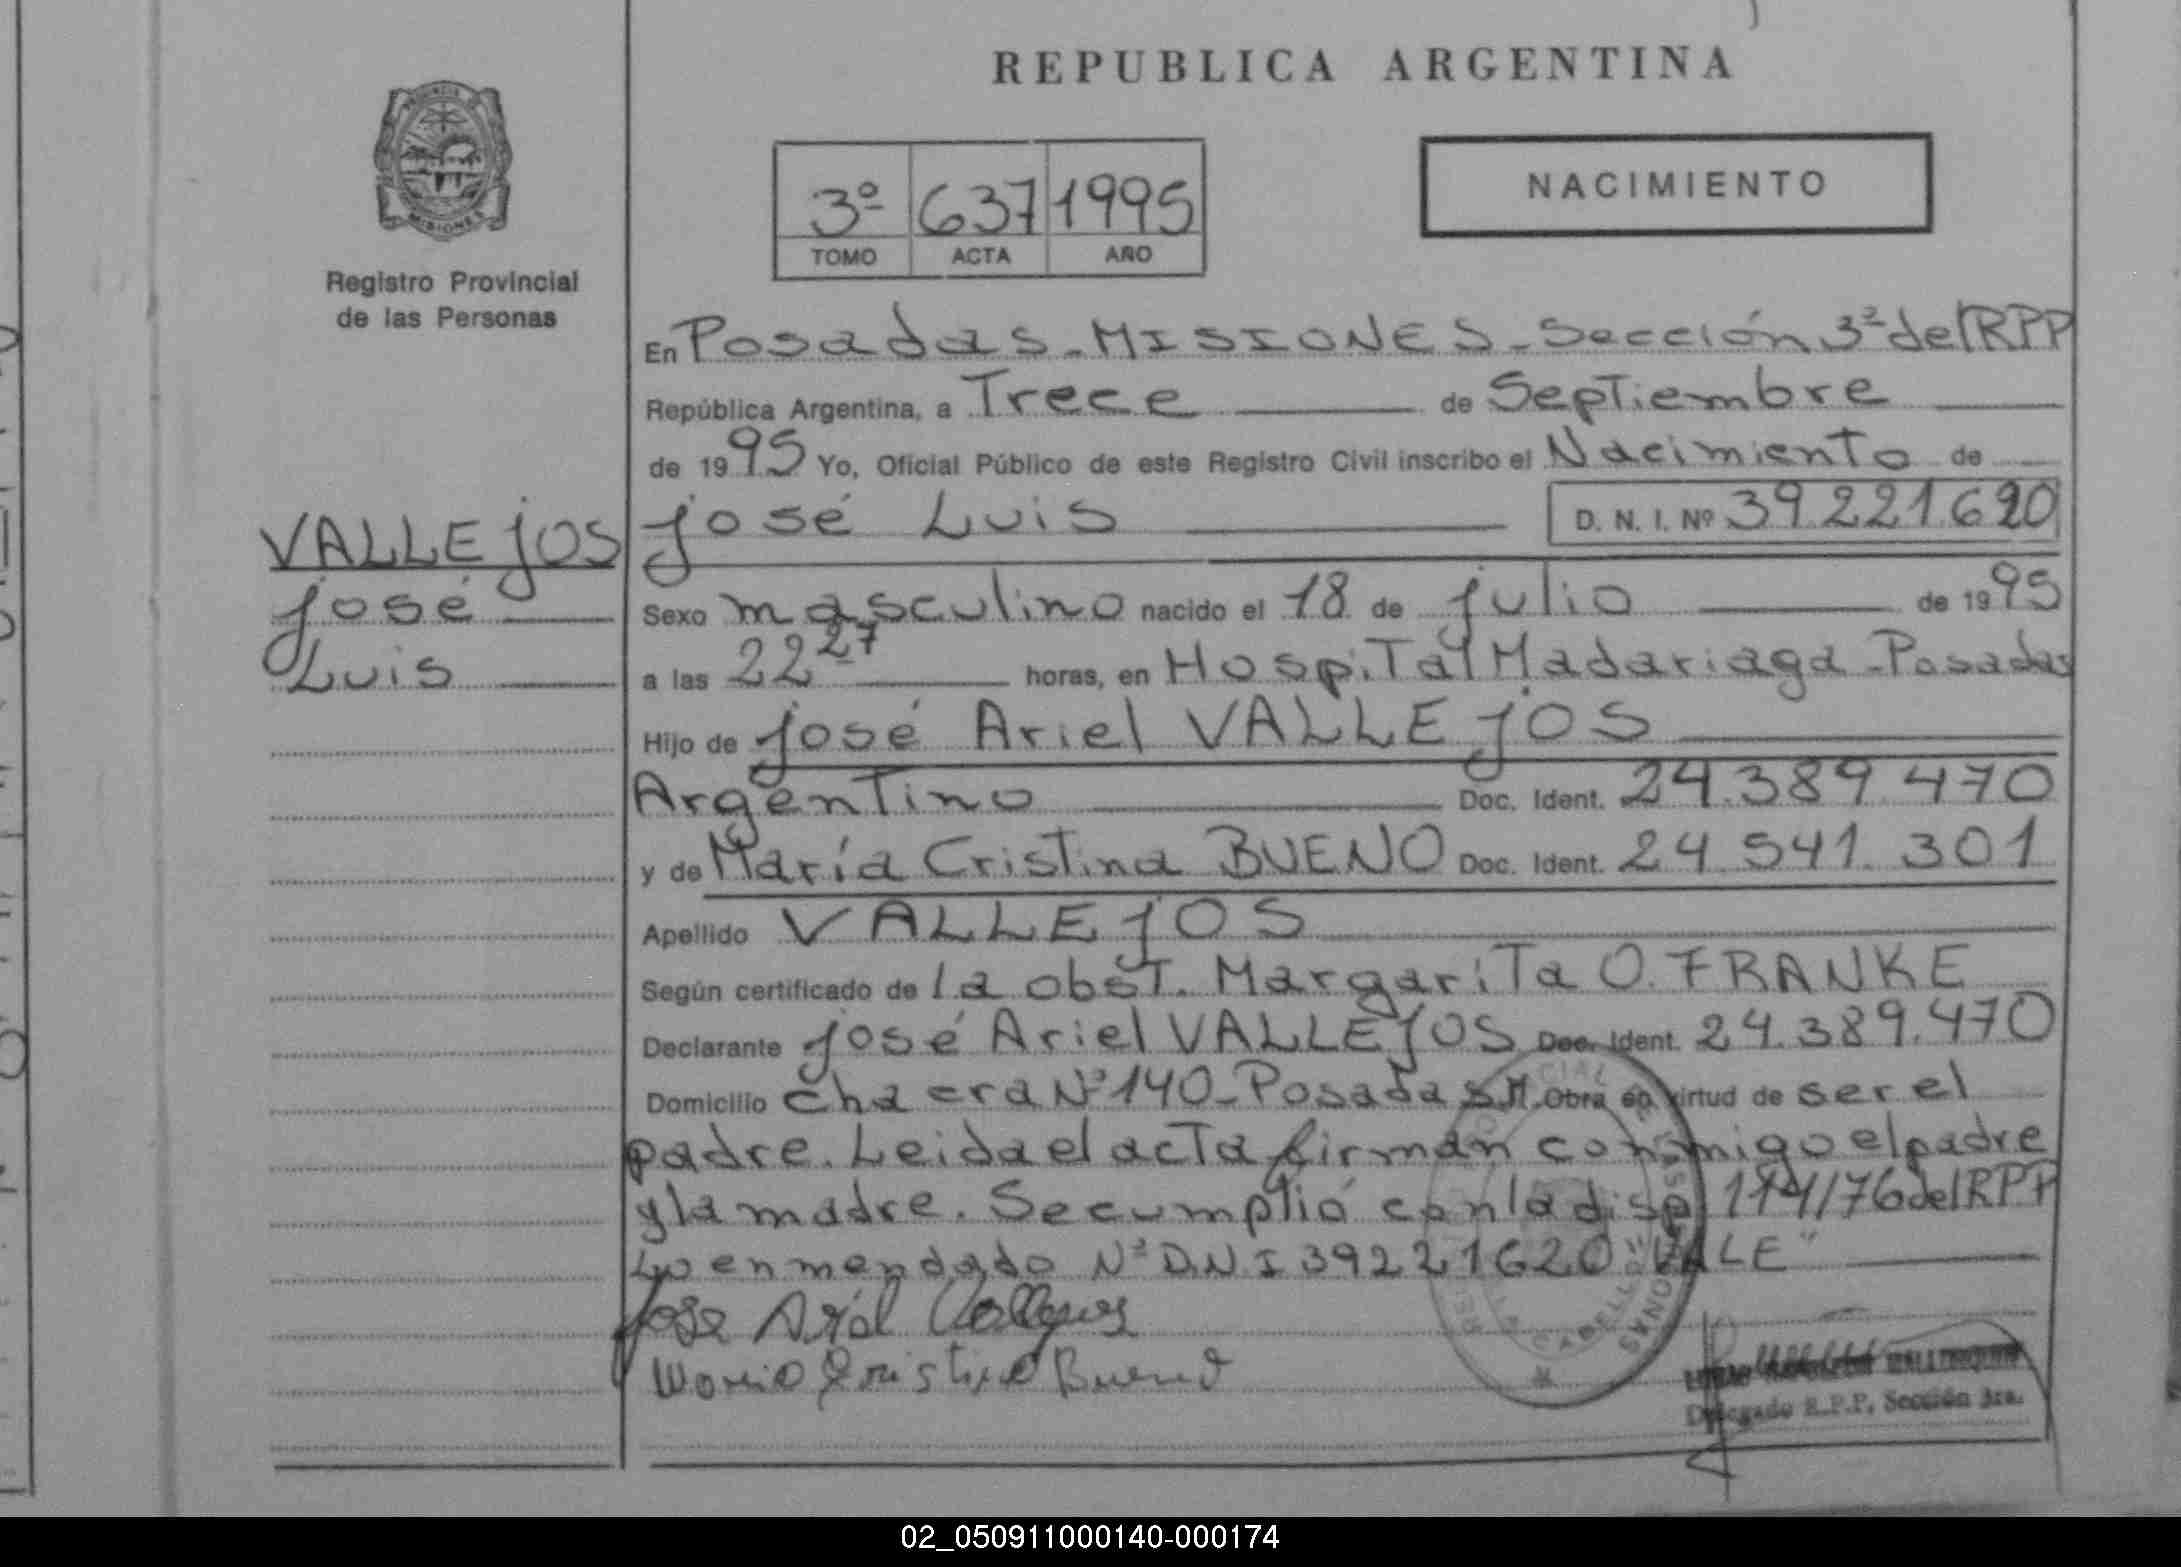 REPUBLICA ARGENTINA
PROVINCIA DE
MISIONES
Registro Provincial
de las Personas
NACIMIENTO
3º 637 1995
TOMO ACTA AÑO
En Posadas - MISIONES - Sección 3ª del RPP
República Argentina, a Trece de Septiembre
de 1995 Yo, Oficial Público de este Registro Civil inscribo el Nacimiento de
VALLEjOS
josé
Luis
josé Luis D. N. I. Nº 39.221.620
Sexo masculino nacido el 18 de julio de 1995
a las 22 27 horas, en Hospital Madariaga - Posadas
Hijo de josé Ariel VALLEjOS
Argentino Doc. Ident. 24.389.470
y de María Cristina BUENO Doc. Ident. 24.541.301
Apellido VALLEjOS
Según certificado de la obst. Margarita O. FRANKE
Declarante josé Ariel VALLEjOS Doc. Ident. 24.389.470
Domicilio Chacra Nº 140 - Posadas M. Obra en virtud de ser el
padre. Leida el acta firman conmigo el padre
y la madre. Se cumplió con la disp 114/76 del RPP
Lo enmendado Nº D.N.I 39221620 "VALE"
Jose Ariel Vallejos
Maria Cristina Bueno
Delegado R.P.P. Sección 3ra.
02_050911000140-000174